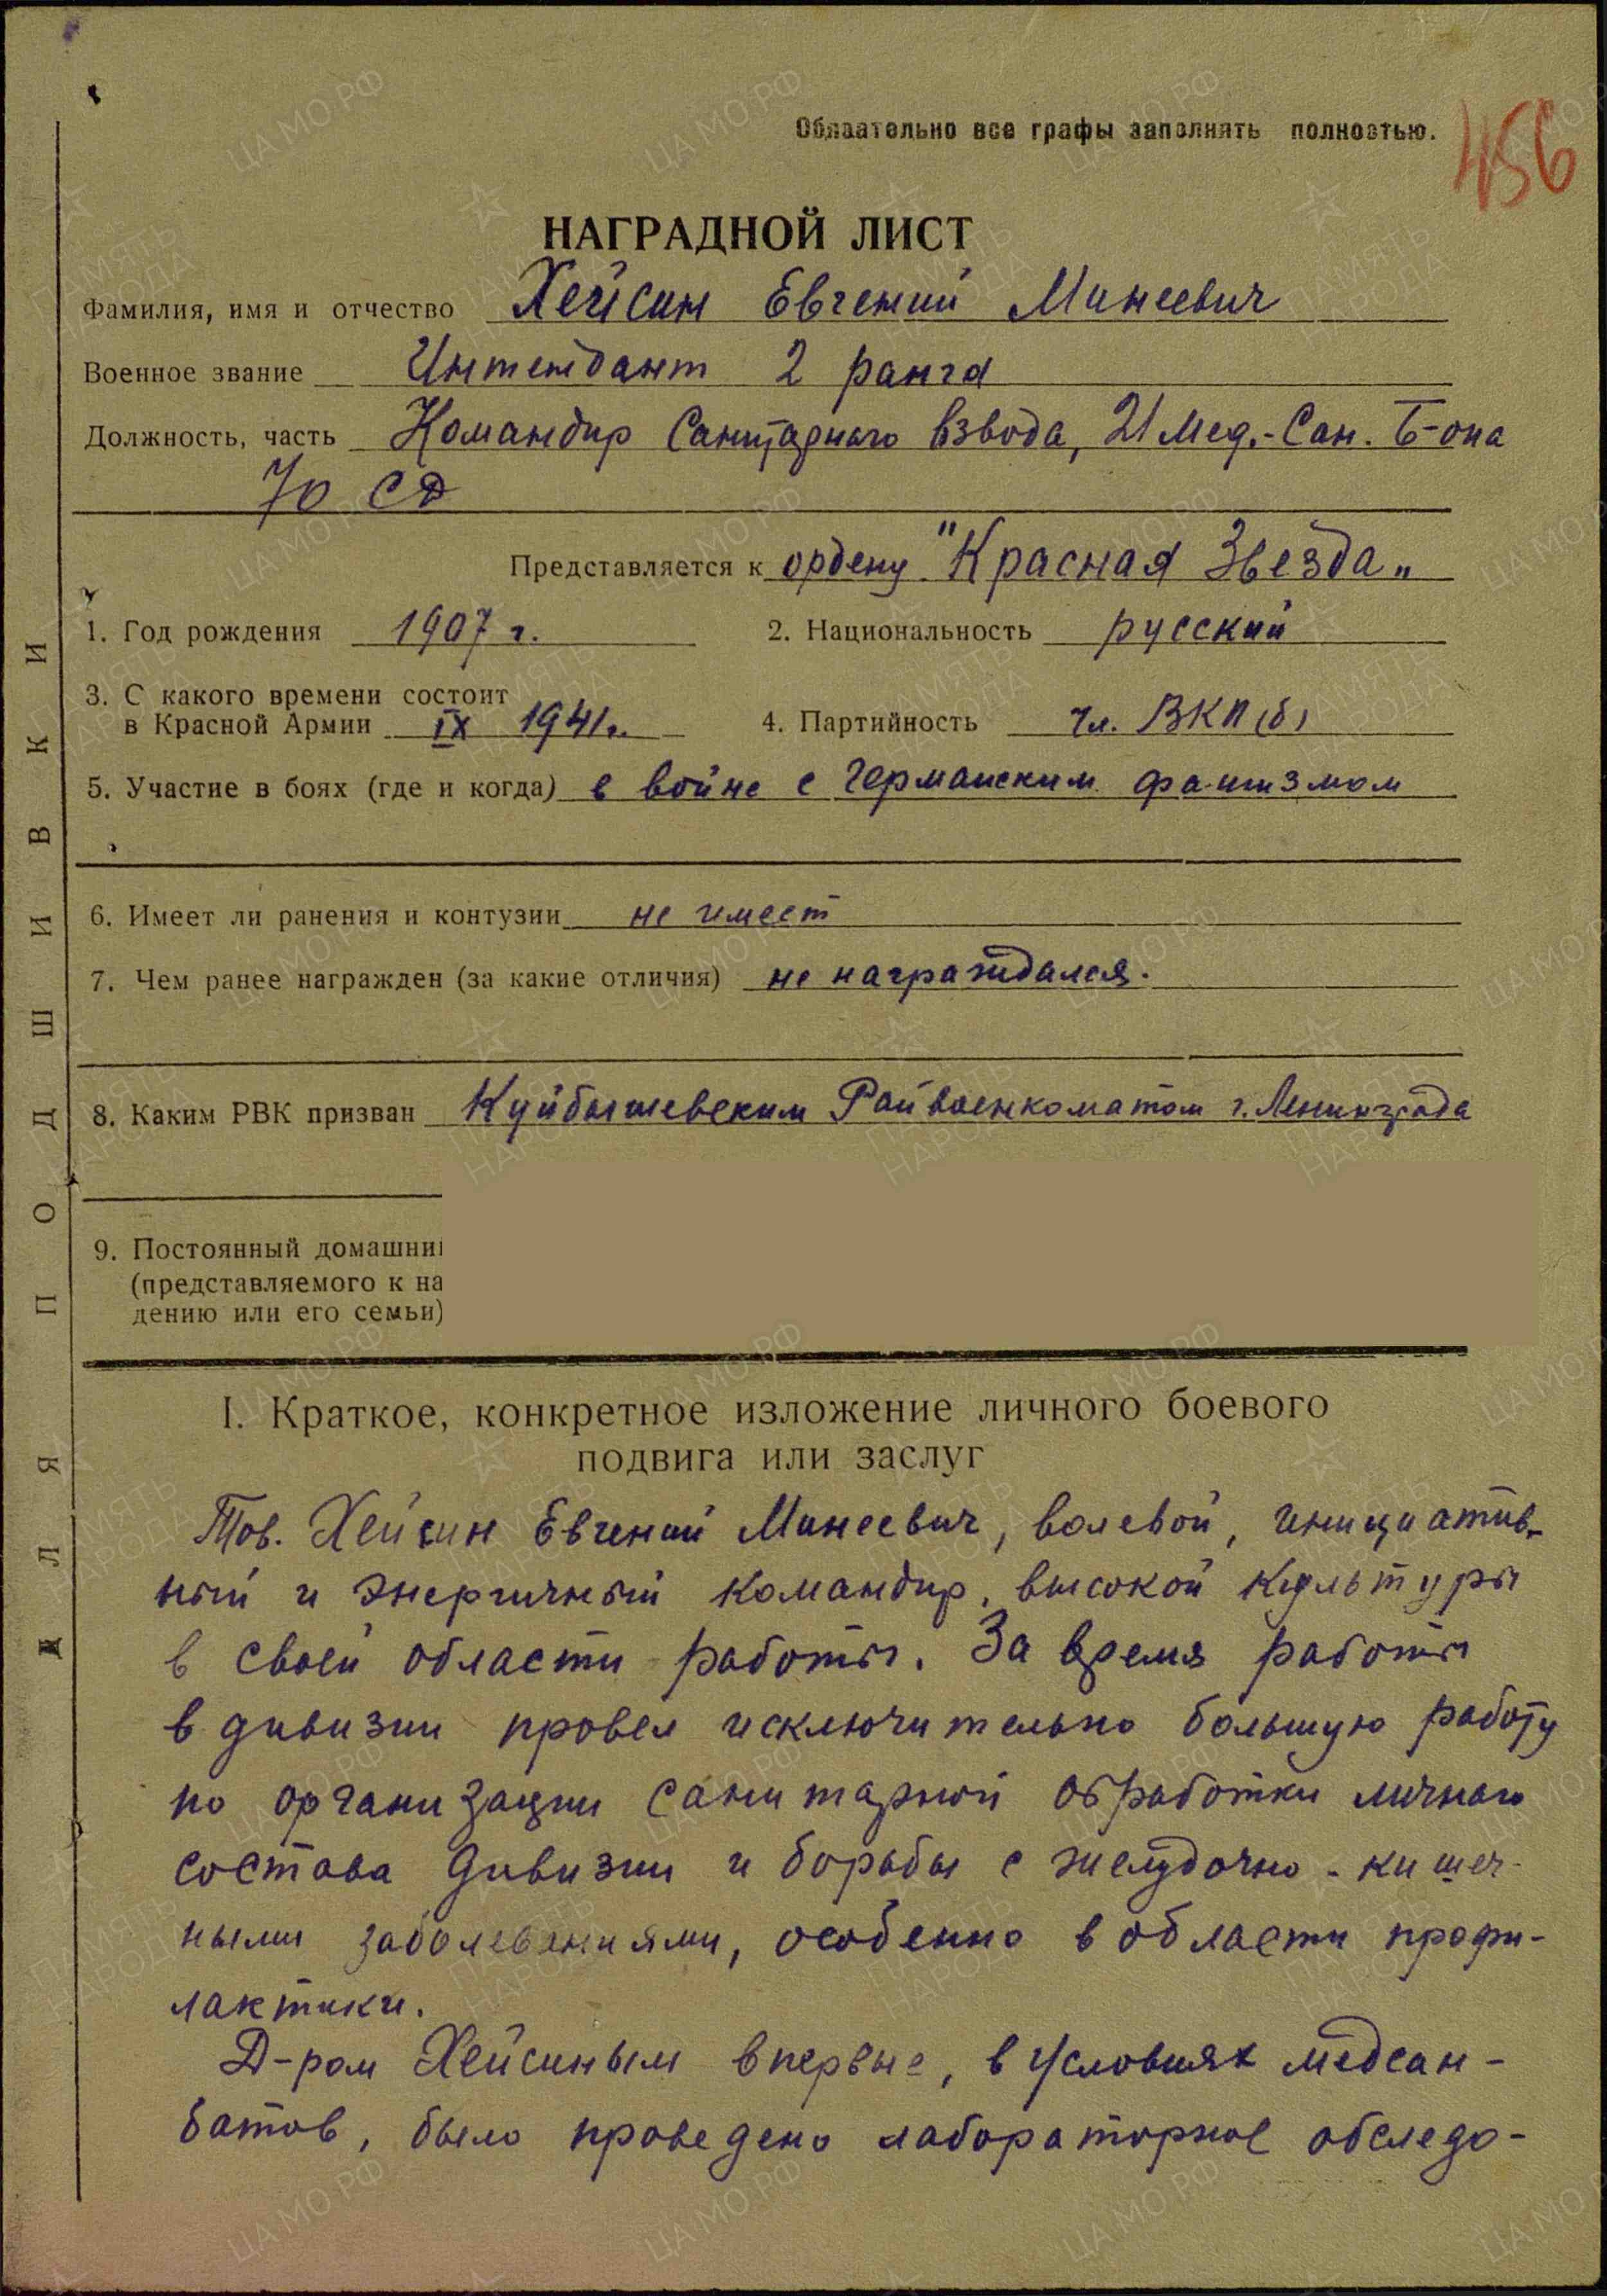 Обязательно все графы заполнять полностью.
456
НАГРАДНОЙ ЛИСТ
Фамилия, имя и отчество Хейсин Евгений Минеевич
Военное звание Интендант 2 ранга
Должность, часть Командир Санитарного взвода, 21 Мед.-Сан. Б-она
70 СД
Представляется к ордену "Красная Звезда"
1. Год рождения 1907 г. 2. Национальность русский
3. С какого времени состоит
в Красной Армии IX 1941г. 4. Партийность чл. ВКП(б)
5. Участие в боях (где и когда) в войне с германским фашизмом
6. Имеет ли ранения и контузии не имеет
7. Чем ранее награжден (за какие отличия) не награждался.
8. Каким РВК призван Куйбышевским Райвоенкоматом г. Ленинграда
9. Постоянный домашни
(представляемого к на
дению или его семьи)
I. Краткое, конкретное изложение личного боевого
подвига или заслуг
Тов. Хейсин Евгений Минеевич, волевой, инициатив-
ный и энергичный командир, высокой культуры
в своей области работы. За время работы
в дивизии провел исключительно большую работу
по организации санитарной обработки личного
состава дивизии и борьбы с желудочно-кишеч-
ными заболеваниями, особенно в области профи-
лактики.
Д-ром Хейсиным впервые, в условиях медсан-
батов, было проведено лабораторное обследо-
ДЛЯ ПОДШИВКИ
ЦА МО РФ
ПАМЯТЬ
НАРОДА